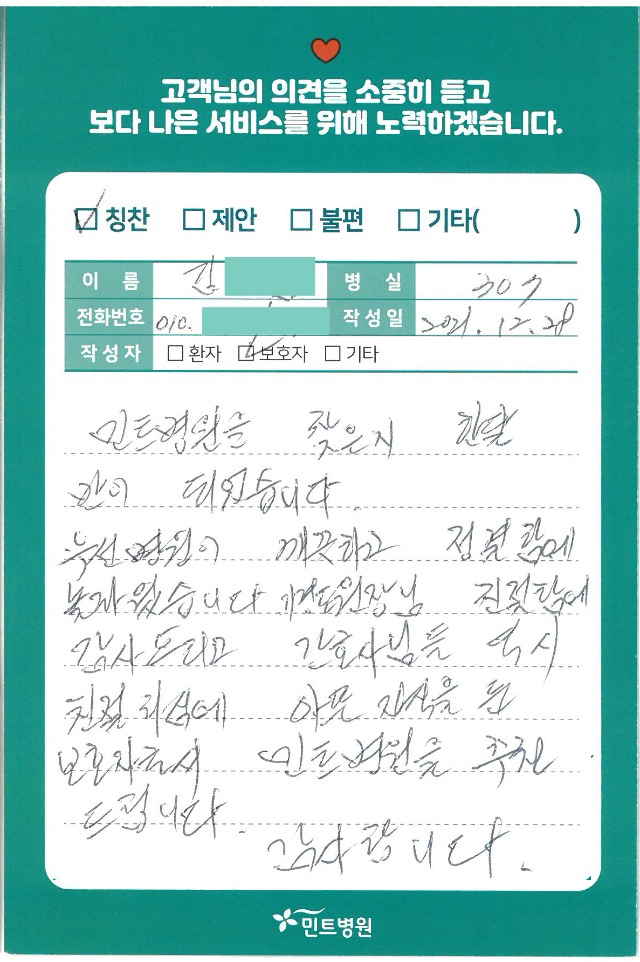 고객님의 의견을 소중히 듣고
보다 나은 서비스를 위해 노력하겠습니다.
칭찬 제안 불편 기타( )
이 름 김 병 실 307
전화번호 010. 작성일 2021. 12. 28
작성자 환자 보호자 기타
민트병원을 찾은지 한달
만이 되었습니다.
우선 병원이 깨끗하고 정결함에
놀라있습니다 원장님 친절함에
감사드리고 간호사님들 역시
친절 아픈 자식을 둔
보호자로서 민트병원을 추천
드립니다.
감사합니다.
민트병원